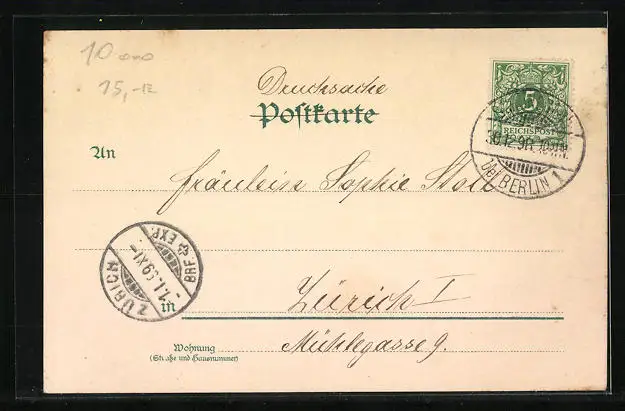 10 000
15,-
Drucksache
Postkarte
5
REICHSPOST
30.12.98.
bei BERLIN 1
An
Fräulein Sophie Stoll
ZÜRICH
1.I.99.XI-
BRF. EXP.
in
Zürich I
Wohnung
(Straße und Hausnummer)
Mühlegasse 9.